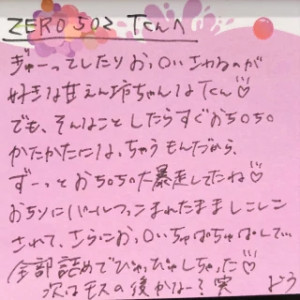 ZERO 502 Tくんへ
ぎゅーってしたりおっ〇いさわるのが
好きな甘えん坊ちゃんはTくん♡
でも、そんなことしたらすぐおち〇ち〇
かたかたにはっちゃうもんだから、
ずーっとおち〇ち〇大暴走してたね♡
おちりにパールつっこまれたまましこしこ
されて、さらにおっ〇いちゅぱちゅぱして…
全部詰めでぴゅっぴゅしちゃった♡
次はモスの後かなー? 笑